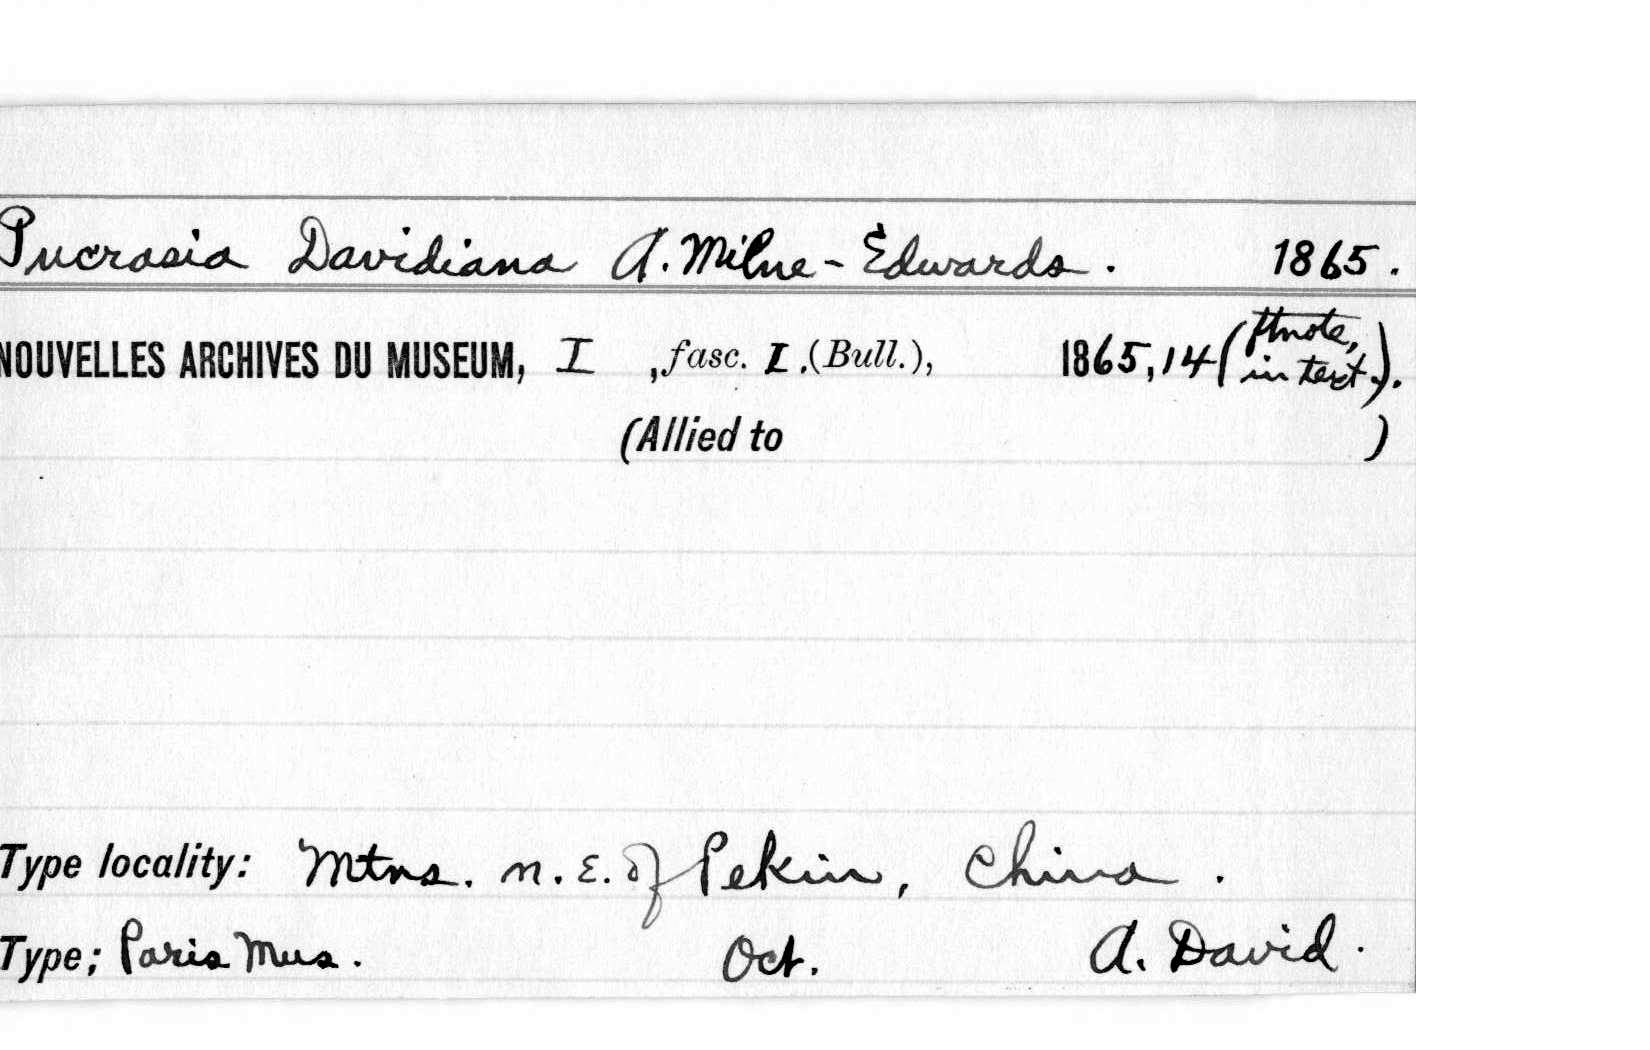 Pucrasia Davidiana A. Milne-Edwards. 1865.
NOUVELLES ARCHIVES DU MUSEUM, I , fasc. I. (Bull.), 1865, 14 (ftnote, in text.).
(Allied to )
Type locality: Mtns. N. E. of Pekin, China.
Type; Paris Mus. Oct. A. David.